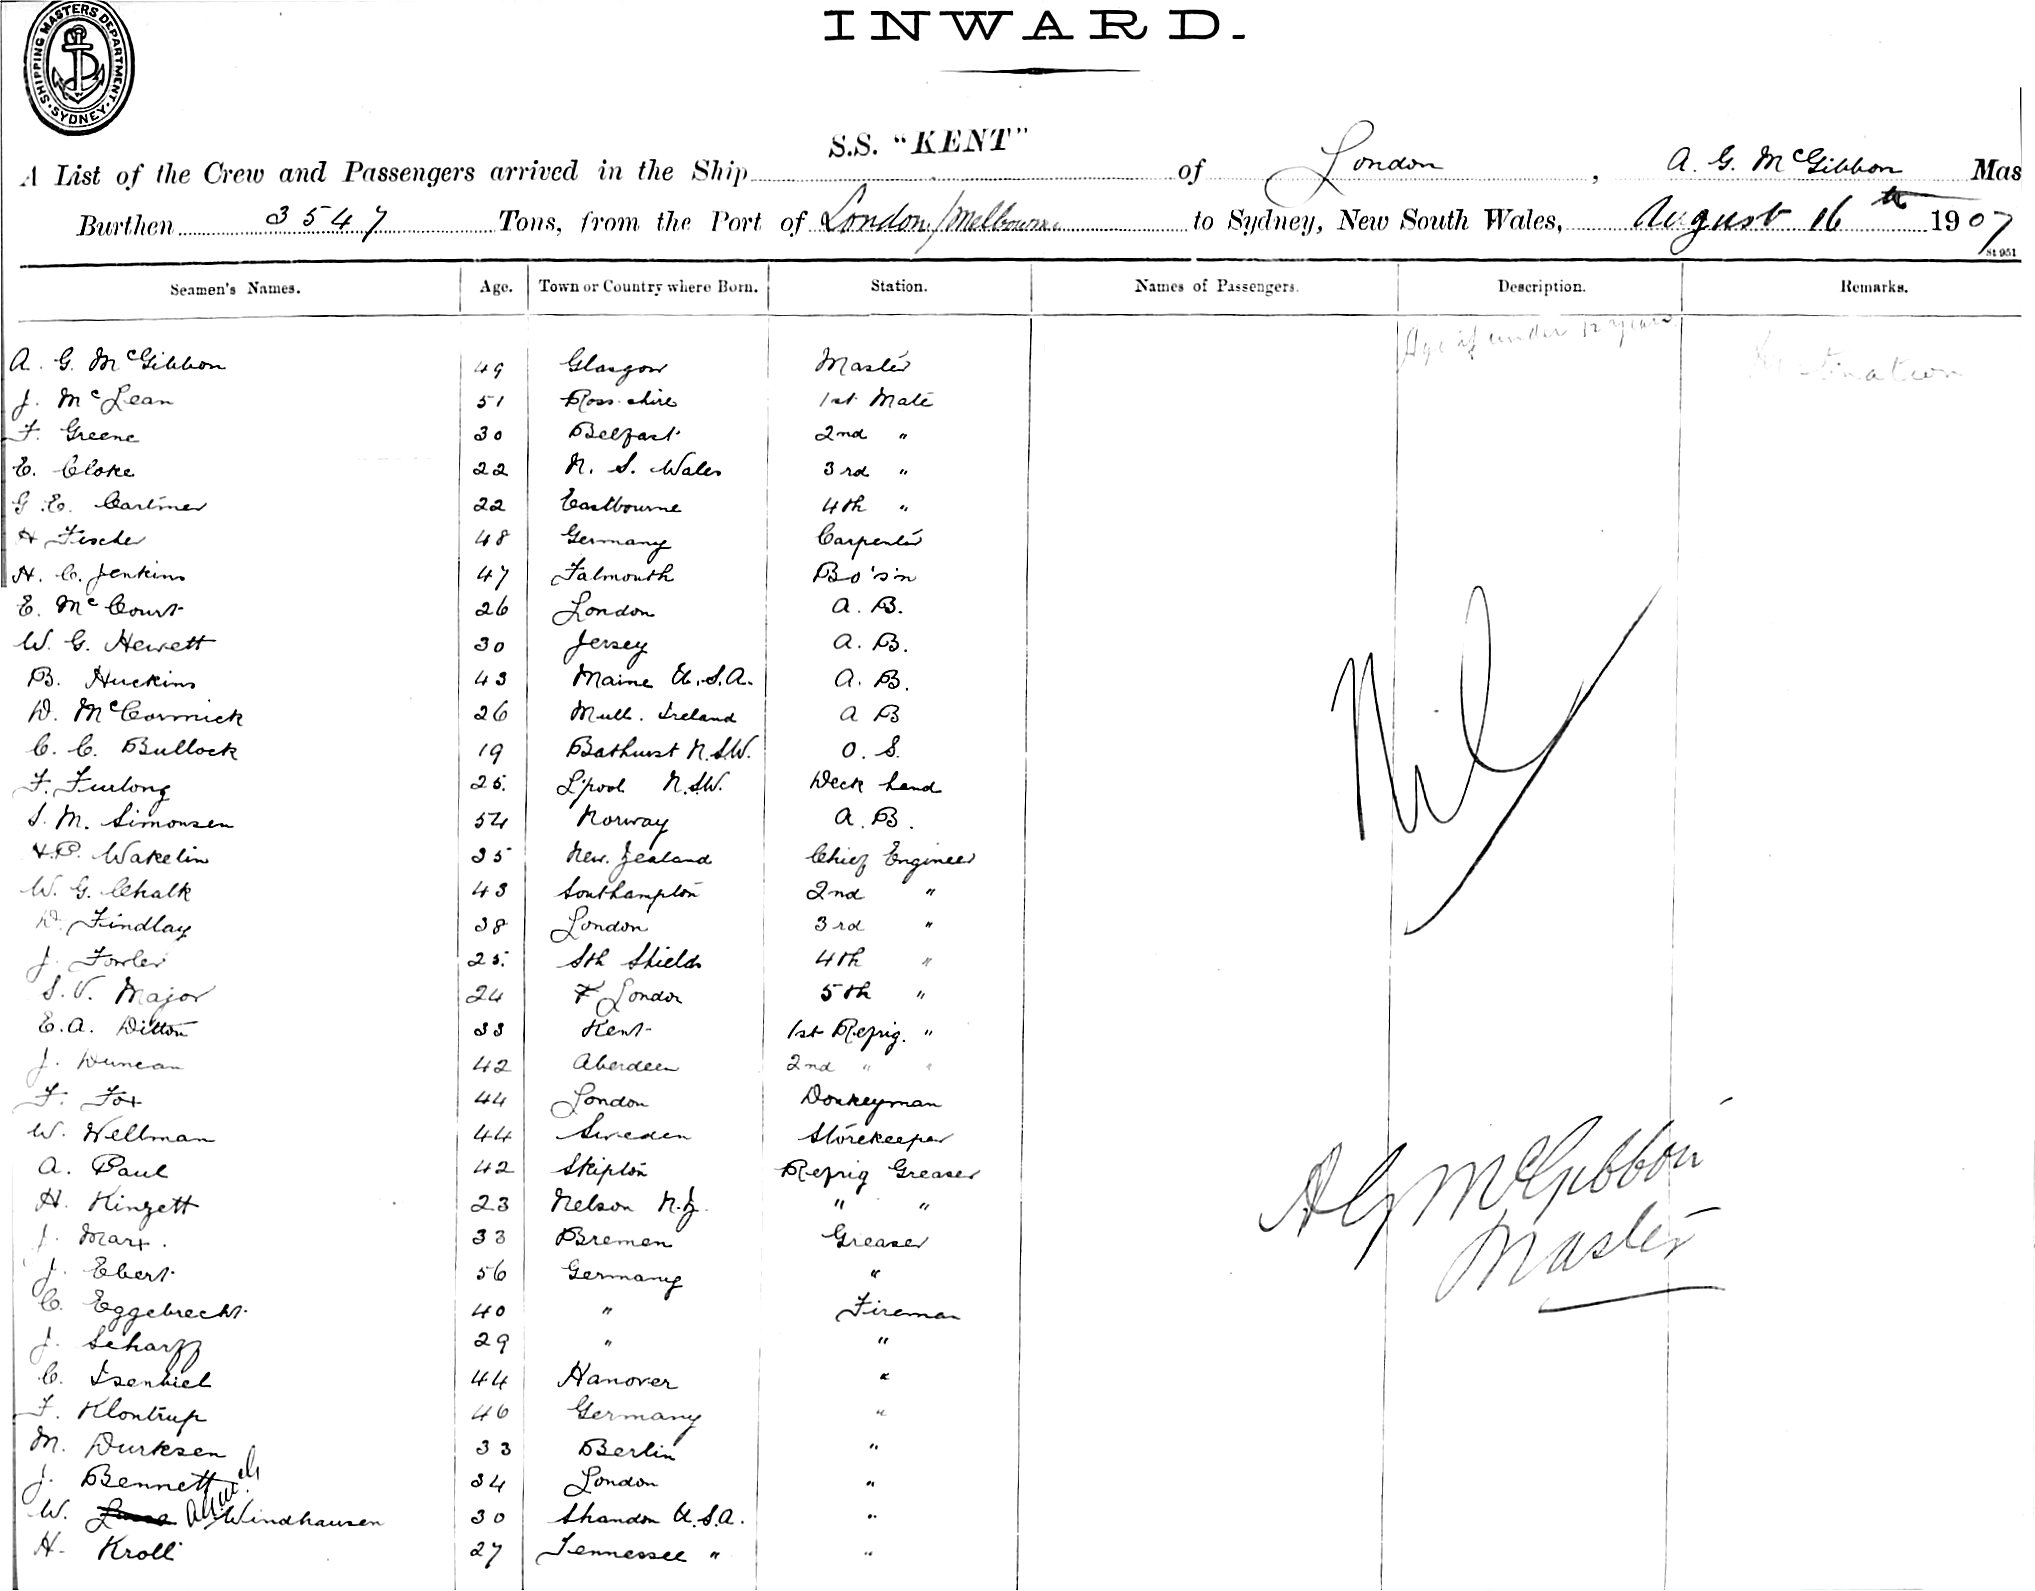 SHIPPING MASTERS DEPARTMENT. SYDNEY
INWARD.
S.S. "KENT"
A List of the Crew and Passengers arrived in the Ship of London, A. G. McGibbon Mas
Burthen 3547 Tons, from the Port of London/Melbourne to Sydney, New South Wales, August 16th 1907
St 951
Seamen's Names. Age. Town or Country where Born. Station. Names of Passengers. Description. Remarks.
Age if under 12 years
A. G. McGibbon 49 Glasgow Master
J. McLean 51 Ross-shire 1st Mate
F. Greene 30 Belfast 2nd "
E. Cloke 22 N. S. Wales 3rd "
G. E. Cartmer 22 Eastbourne 4th "
H Fischer 48 Germany Carpenter
H. C. Jenkins 47 Falmouth Bo's'n
E. McCourt 26 London A. B.
W. G. Hewett 30 Jersey A. B.
B. Huckins 43 Maine U.S.A. A. B.
D. McCormick 26 Mull. Ireland A B
C. C. Bullock 19 Bathurst N.S.W. O. S.
F. Furlong 25. L'pool N.S.W. Deck hand
S. M. Simonsen 54 Norway A. B.
Wakelin 35 New. Zealand Chief Engineer
W. G. Chalk 43 Southampton 2nd "
D. Findlay 38 London 3rd "
J. Fowler 25. Sth Shields 4th "
S. V. Major 24 London 5th "
E. A. Ditton 33 Kent 1st Refrig. "
J. Duncan 42 Aberdeen 2nd " "
F. Fox 44 London Donkeyman
W. Wellman 44 Sweden Storekeeper
A. Paul 42 Skipton Refrig Greaser
H. Kinzett 23 Nelson N.Z. " "
J. Marx. 33 Bremen Greaser
J. Ebert 56 Germany "
C. Eggebrecht 40 " Fireman
J. Scharff 29 " "
C. Isenbiel 44 Hanover "
F. Klontrup 46 Germany "
M. Durksen 33 Berlin "
J. Bennett 34 London "
W. Windhausen 30 Shandon U.S.A. "
H. Kroll 27 Tennessee " "
Nil
A G McGibbon
Master